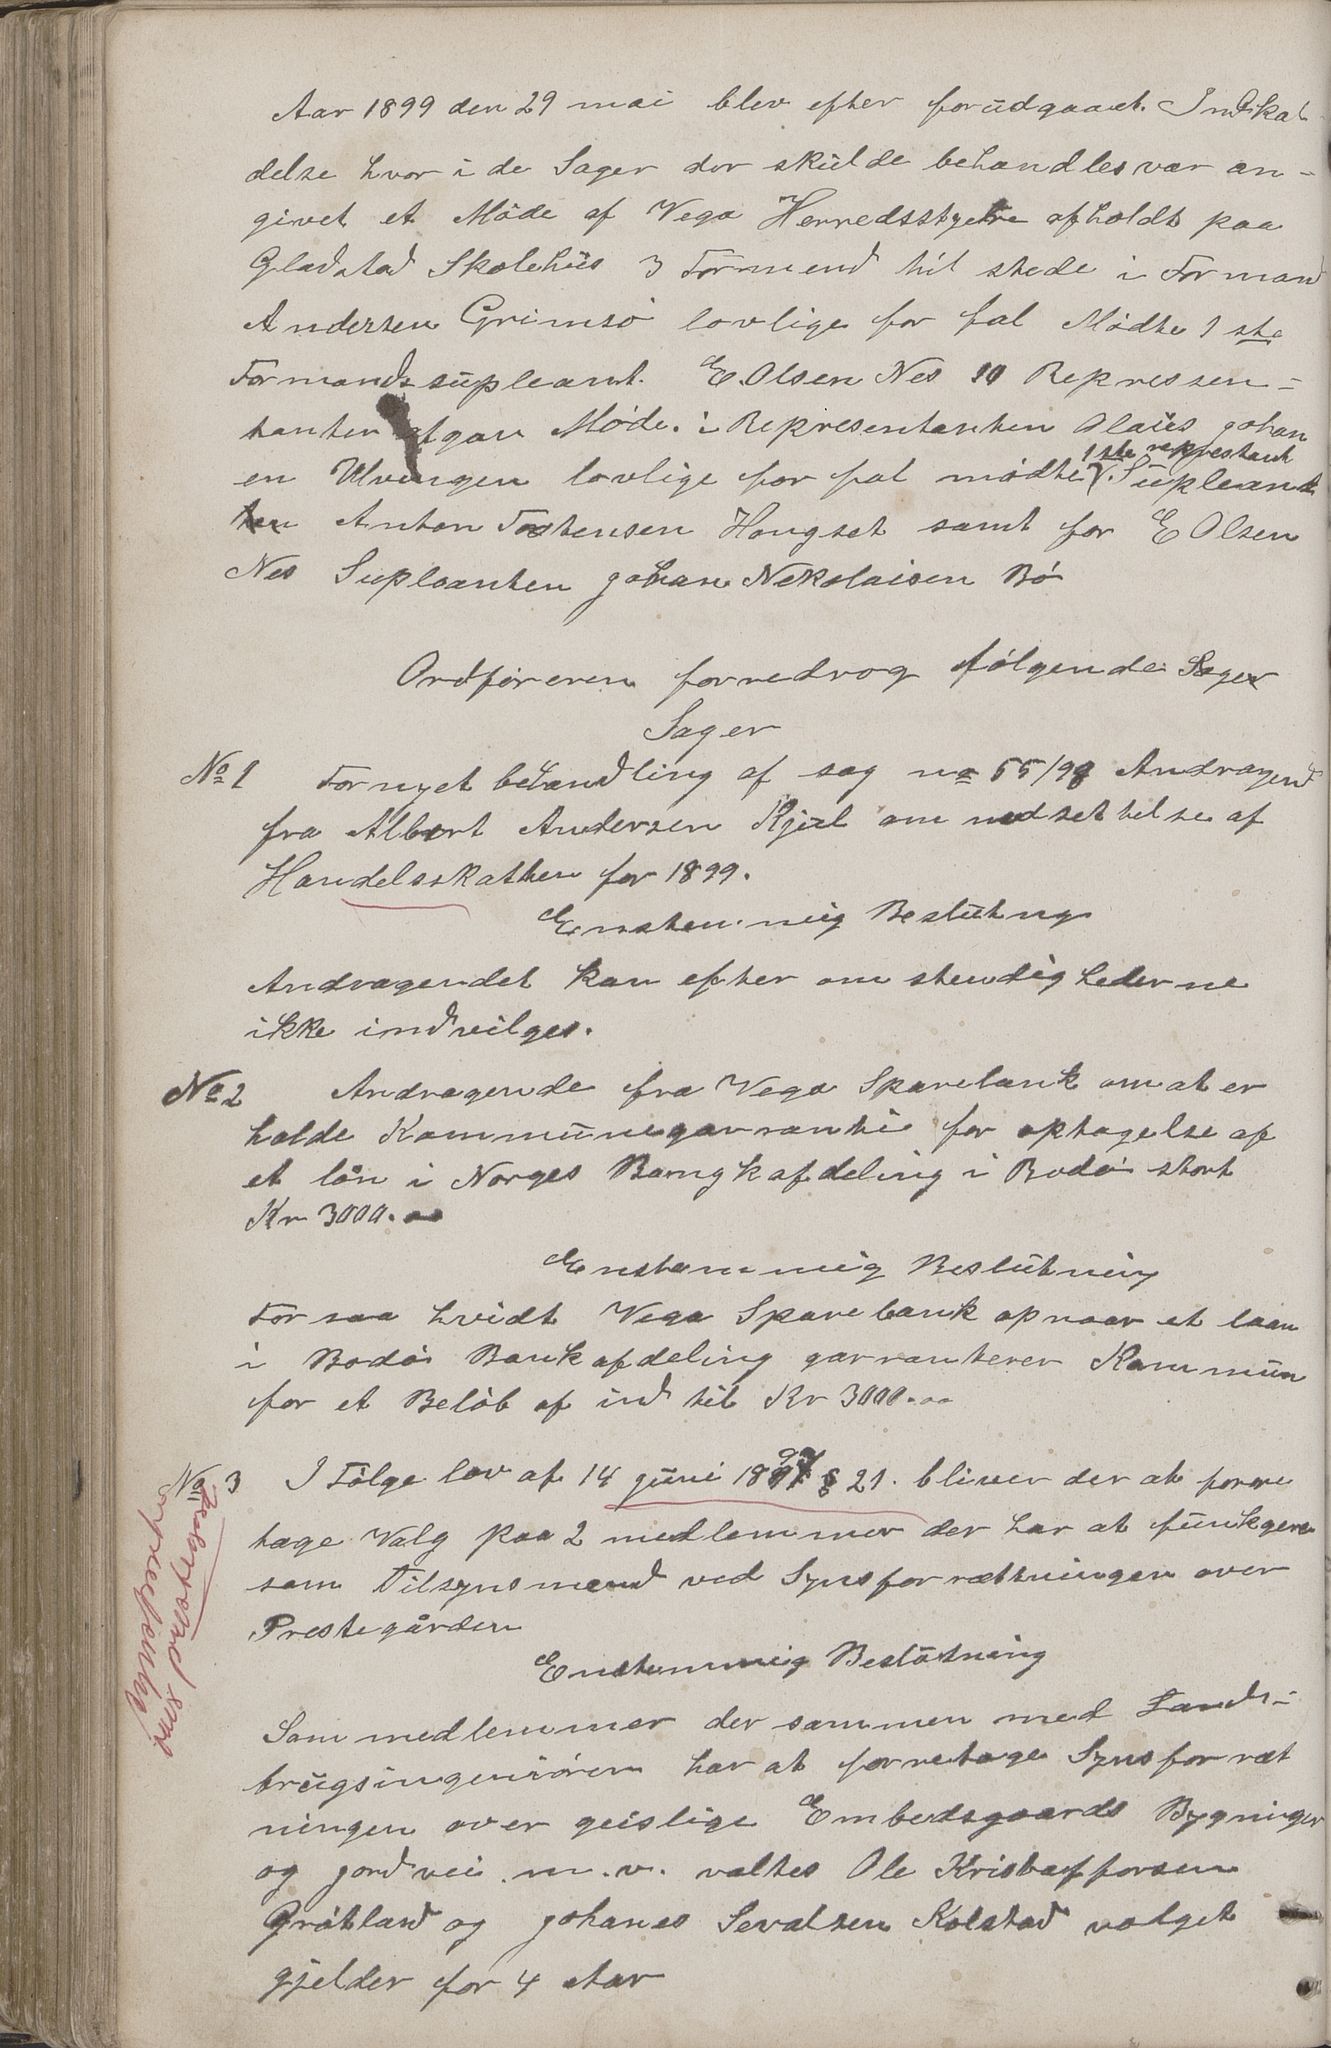 Aar 1899 den 29 mai blev efter forudgaaet Indkal
delse hvor i de Sager der skulde behandles var an-
givet et Møde af Vega Herredsstyre afholdt paa
Gladstad Skolehus 3 Formend til stede i Formand
Andersen Grimsø lovlige for fal Mødte 1ste
Formandssupleant E. Olsen Nes 10 Repressen-
tanter afgav Møde. i Representanten Olaus Johan
en Ulvingen lovlige for fal mødte 1ste represtant Supleant
ten Anton Tostensen Hongset samt for E Olsen
Nes Supleanten Johan Nekolaisen Bø
Ordføreren forredrog følgende Sager
Sager
No 1 Fornyet behandling af sag no 55/98 Andragend
fra Albert Andersen Kjul om nedsettelse af
Handelsskatten for 1899.
Enstemmig Beslutng
Andragendet kan efter omstendighederne
ikke indvilges.
No 2 Andragende fra Vega Sparebank om at er
holde Kommunegarranti for optagelse af
et lån i Norges Bangkafdeling i Bodø stort
Kr 3000.00
Enstemmig Beslutning
For saa hvidt Vega Sparebank opnaar et laan
i Bodø Bankafdeling garranterer Kommun
for et Beløb af ind til Kr 3000.00
No 3 I Følge lov af 14 juni 1897 § 21. bliver der at forre
tage Valg paa 2 medlemmer der har at funkgere
som Tilsynsmend ved Synsforrettningen over
Prestegården
Enstemmig Beslutning
Som medlemmer der sammen med Lands-
brugsingeniøren har at forretage Synsforræt
ningen over geislige Embedsgaards Bygninger
og jordvei m.v. valtes Ole Kristoffersen
Grøtland og Johanes Sevalsen Kolstad valget
gjelder for 4 Aar